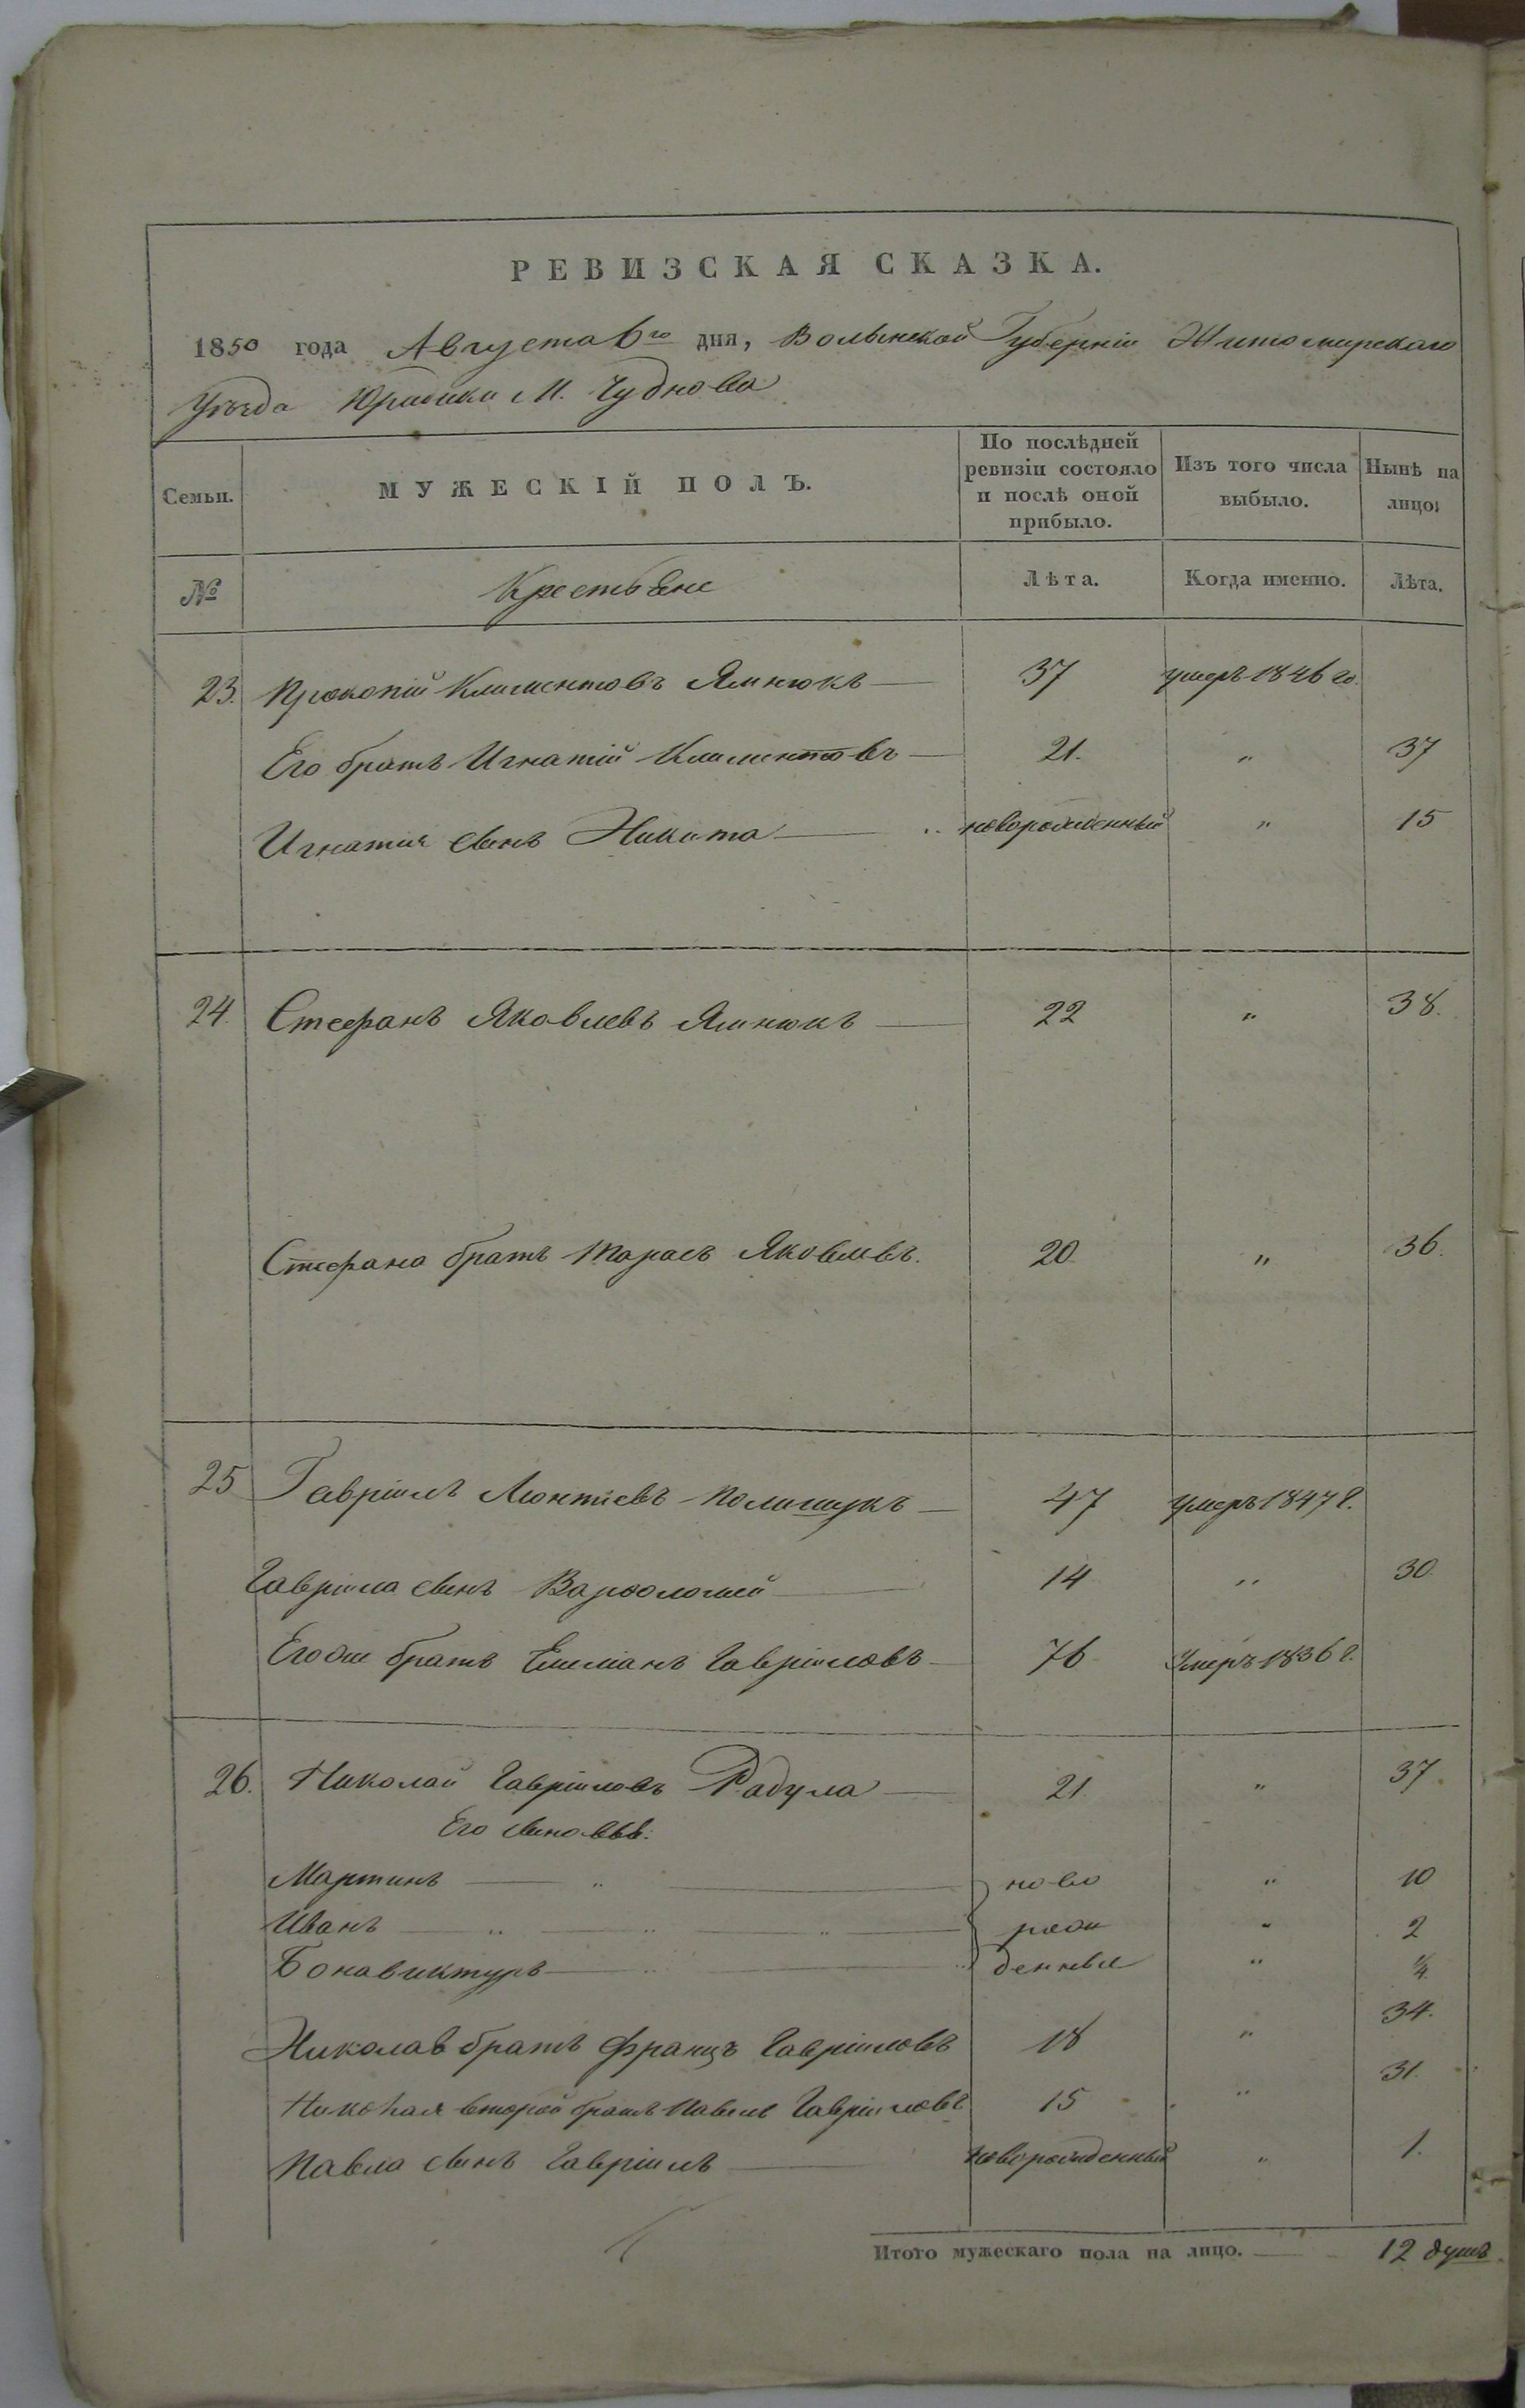 РЕВИЗСКАЯ СКАЗКА.
1850 года Августа 6го дня, Волынской Губерніи Житомирскаго
Уѣзда Юридики М. Чуднова
Семьи. МУЖЕСКІЙ ПОЛЪ. По послѣдней ревизіи состояло и послѣ оной прибыло. Изъ того числа выбыло. Нынѣ на лицо:
№ Крестьяне Лѣта. Когда именно. Лѣта.
23. Прокопій Климентовъ Ямнюкъ — 37 умеръ 1846 го.
Его братъ Игнатій Климентовъ — 21. " 37
Игнатія сынъ Никита — новорожденный " 15
24. Стефанъ Яковлевъ Ямнюкъ — 22 " 38.
Стефана братъ Тарасъ Яковлевъ. 20 " 36.
25 Гавріилъ Леонтіевъ Полищукъ — 47 умеръ 1847 г.
Гавріила сынъ Варфоломей — 14 " 30.
братъ Гавріиловъ — 76 Умеръ 1836 г.
26. Николай Гавріиловъ Радула — 21. " 37.
Его сыновья:
Мартинъ — " — ново " 10
Иванъ — " — " — " — рож " 2
Бонавиктуръ — " — денные " ¼
Николая братъ Францъ Гавріиловъ 18 " 34.
Николая второй братъ Павелъ Гавріиловъ 15 " 31.
Павла сынъ Гавріилъ — новорожденный " 1.
Итого мужескаго пола на лицо. — 12 душъ.